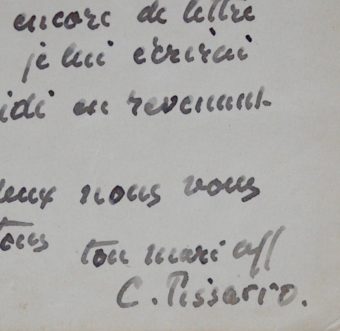 encore de lettre
je lui écrirai
idi en revenant
deux nous vous
tous
ton mari aff
C. Pissarro.